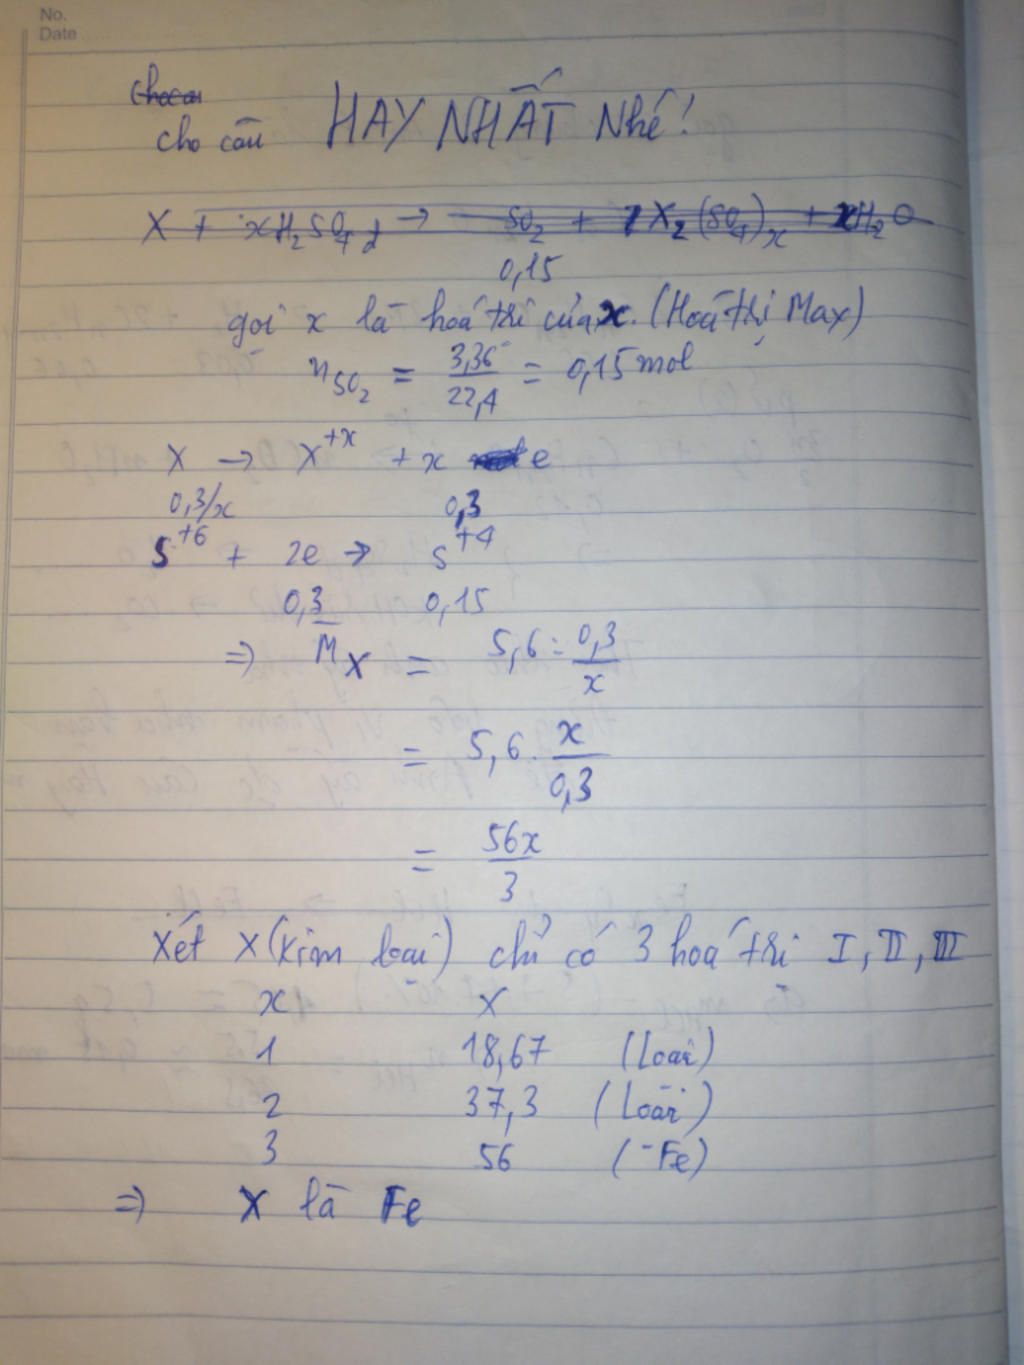 No.
Date
cho câu HAY NHẤT Nhé!
X + xH₂SO₄đ → SO₂ + 1X₂(SO₄)ₓ + xH₂O
0,15
gọi x là hoá trị của x. (Hoá trị Max)
n SO₂ = 3,36/22,4 = 0,15 mol
X → X⁺ˣ + x e
0,3/x 0,3
S⁺⁶ + 2e → S⁺⁴
0,3 0,15
⇒ M X = 5,6 : 0,3/x
= 5,6 . x/0,3
= 56x/3
Xét X (kim loại) chỉ có 3 hoá trị I, II, III
x X
1 18,67 (Loại)
2 37,3 (Loại)
3 56 (Fe)
⇒ X là Fe